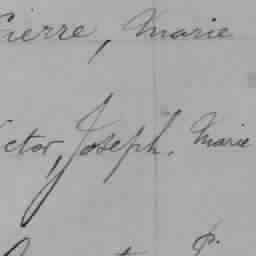 Pierre, Marie
ictor, Joseph. Marie